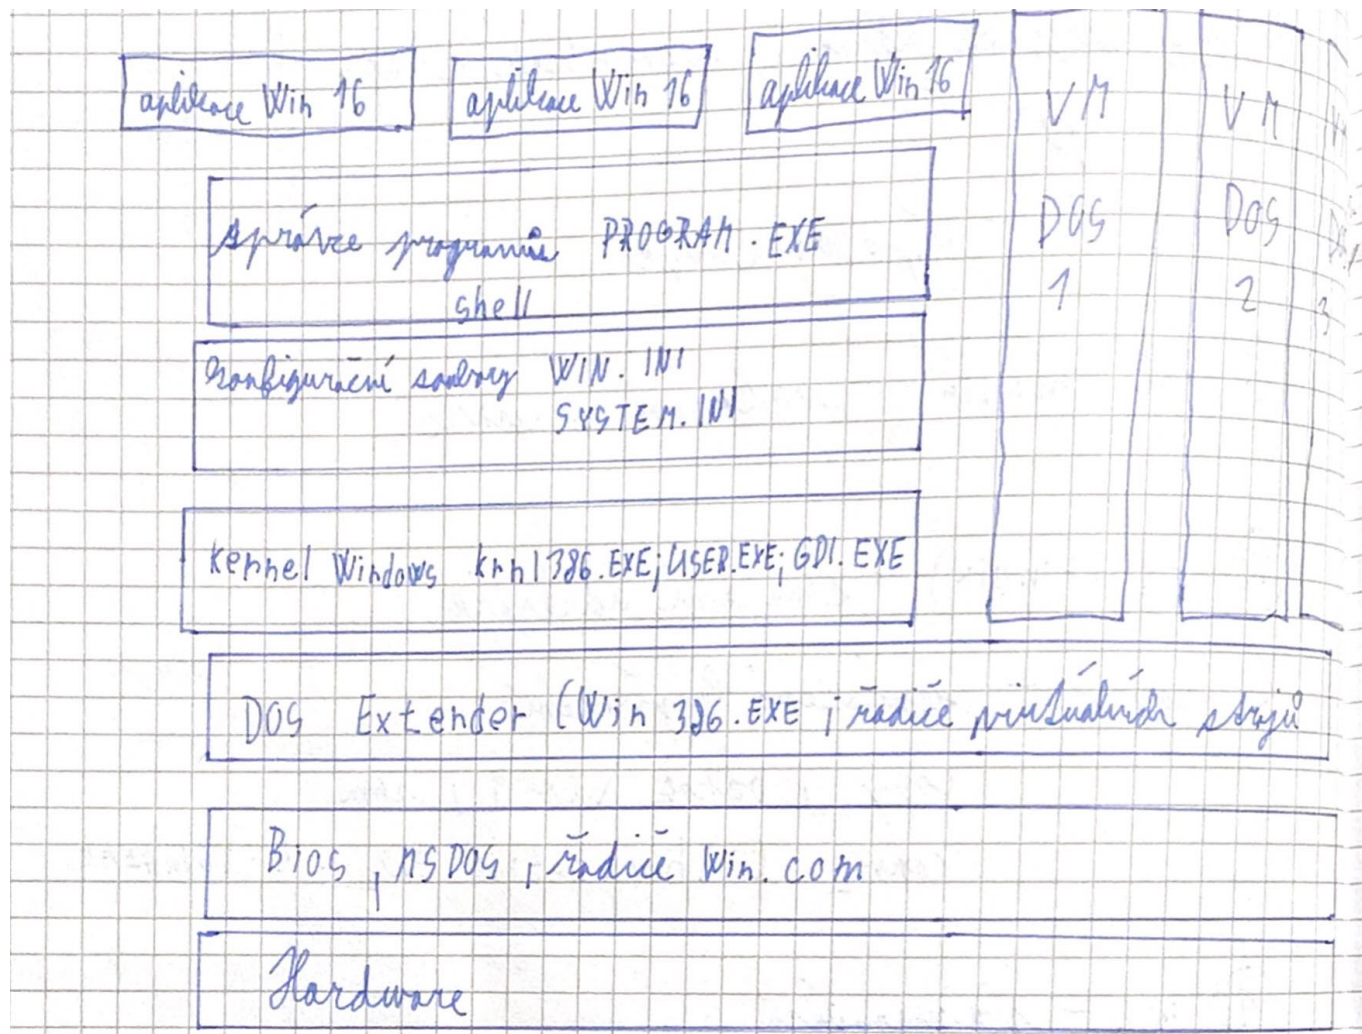 aplikace Win 16
aplikace Win 16
aplikace Win 16
VM
DOS
1
VM
DOS
2
3
správce programů PROGRAM.EXE
shell
konfigurační soubory WIN.INI
SYSTEM.INI
Kernel Windows krnl386.EXE; USER.EXE; GDI.EXE
DOS Extender (Win 386.EXE; řadiče virtuálních strojů
Bios, MSDOS, řadiče Win.com
Hardware